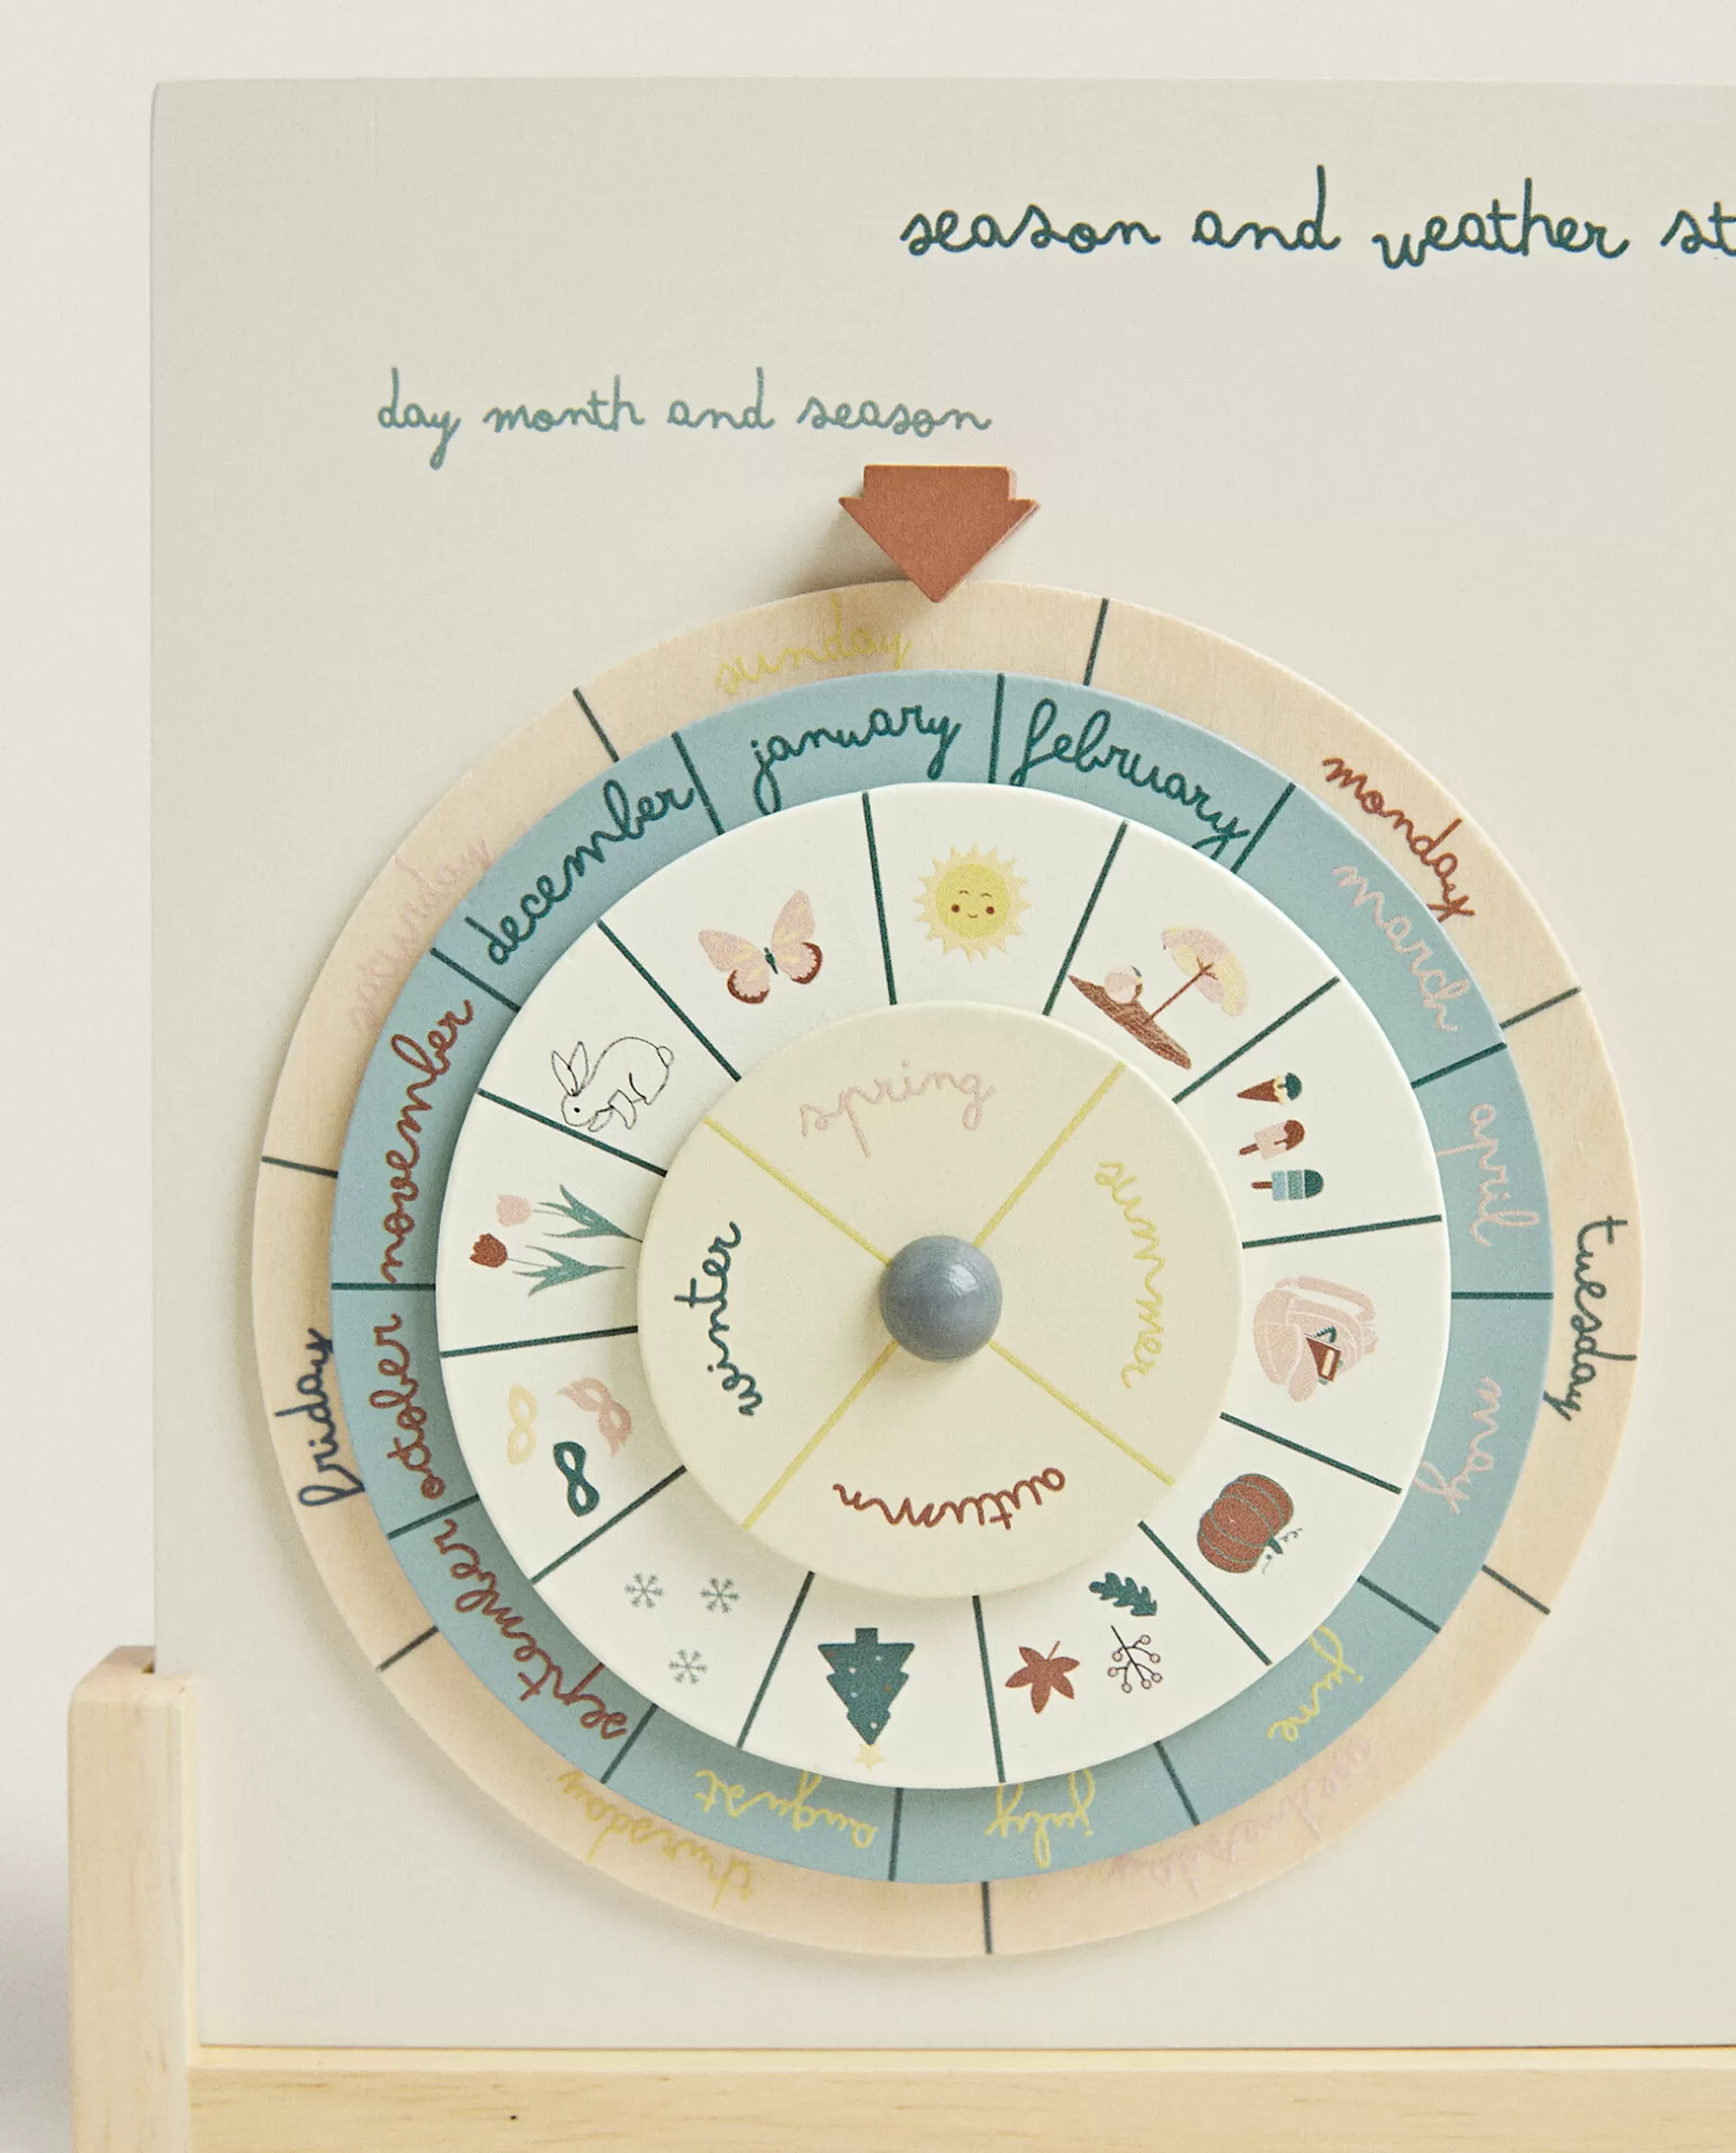 season and weather st
day month and season
sunday
monday
tuesday
wednesday
thursday
friday
saturday
january
february
march
april
may
june
july
august
september
october
november
december
spring
summer
autumn
winter